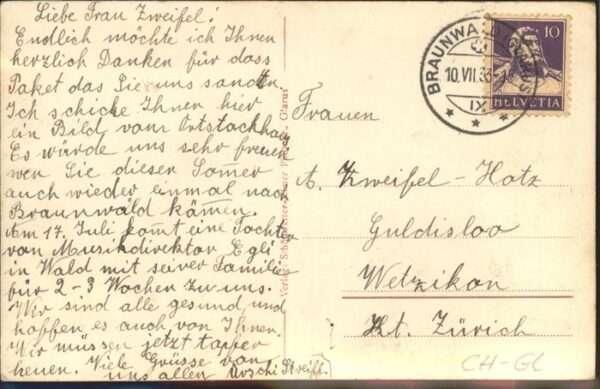 Liebe Frau Zweifel!
Endlich möchte ich Ihnen
herzlich Danken für dass
Paket das Sie uns sandtn
Ich schicke Ihnen hier
ein Bild vom Ortstockhaus
Es würde uns sehr freuen
wen Sie diesen Somer
auch wieder einmal nach
Braunwald kämen.
Am 17. Juli komt eine Tochter
von Musikdirektor Egli
in Wald mit seiner Familie
für 2-3 Wochen zu uns.
Wir sind alle gesund und
hoffen es auch von Ihnen.
Wir müssen jetzt tapfer
heuen. Viele Grüsse von
uns allen Urschi Streiff.
Glarus
BRAUNWALD (GLARUS)
10.VII.33
IX
10
HELVETIA
Frauen
A. Zweifel-Hotz
Guldisloo
Wetzikon
Kt. Zürich
CH-GL